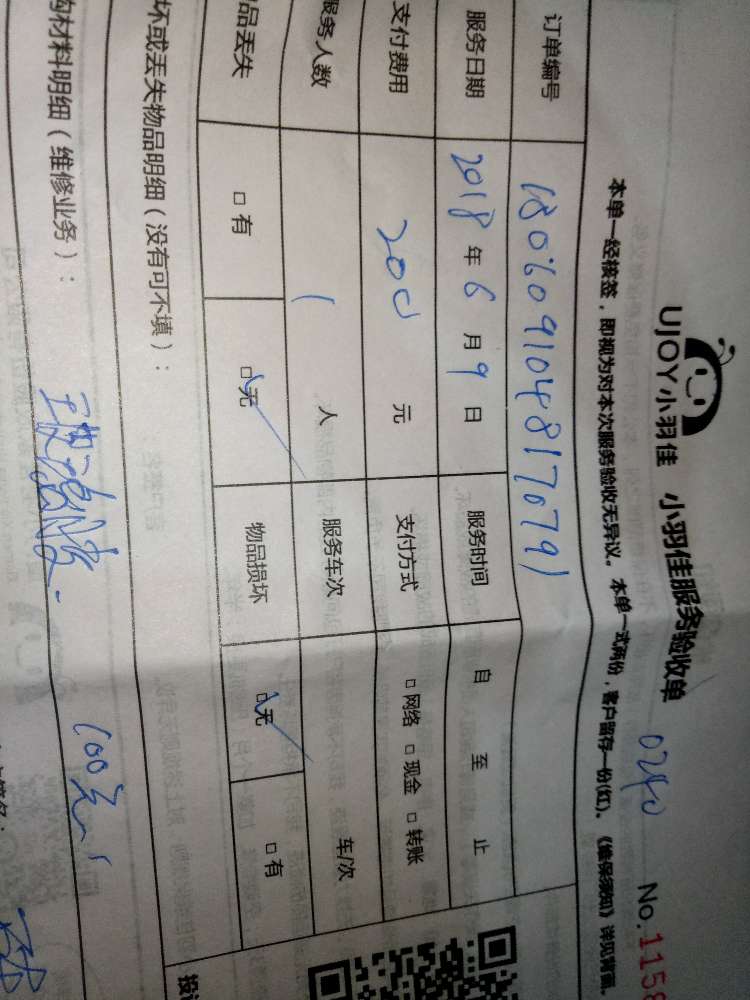 UJOY小羽佳 小羽佳服务验收单 0240 No.1158
本单一经核签，即视为对本次服务验收无异议。本单一式两份，客户留存一份(红)。《维保须知》详见背面。
订单编号 180609104817079
服务日期 2018年6月9日 服务时间 自 至 止
支付费用 200元 支付方式 □网络 □现金 □转账
服务人数 1人 服务车次 车/次
品丢失 □有 □无 物品损坏 □无 □有
坏或丢失物品明细（没有可不填）：
购材料明细（维修业务）：
100元